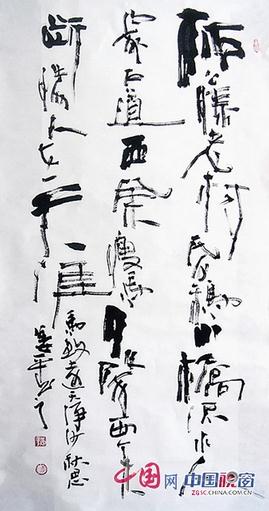 枯藤老树昏鸦小橋流水人
家古道西風瘦馬夕陽西下
断腸人在天涯
馬致远天净沙秋思
中国网 中国视窗
ZGSC.CHINA.COM.CN